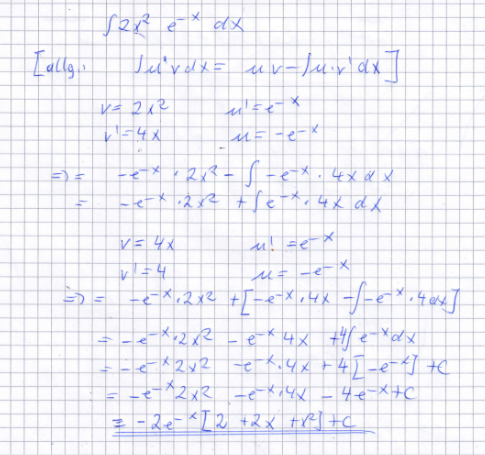 ∫ 2x² e⁻ˣ dx
[allg.: ∫u'v dx = u v − ∫u·v' dx]
v = 2x² u' = e⁻ˣ
v' = 4x u = −e⁻ˣ
=> = −e⁻ˣ · 2x² − ∫ −e⁻ˣ · 4x dx
= −e⁻ˣ · 2x² + ∫e⁻ˣ · 4x dx
v = 4x u' = e⁻ˣ
v' = 4 u = −e⁻ˣ
=> = −e⁻ˣ · 2x² + [−e⁻ˣ · 4x − ∫−e⁻ˣ · 4 dx]
= −e⁻ˣ · 2x² − e⁻ˣ 4x + 4∫e⁻ˣ dx
= −e⁻ˣ 2x² − e⁻ˣ · 4x + 4 [−e⁻ˣ] + C
= −e⁻ˣ 2x² − e⁻ˣ · 4x − 4e⁻ˣ + C
= −2e⁻ˣ [2 + 2x + x²] + C